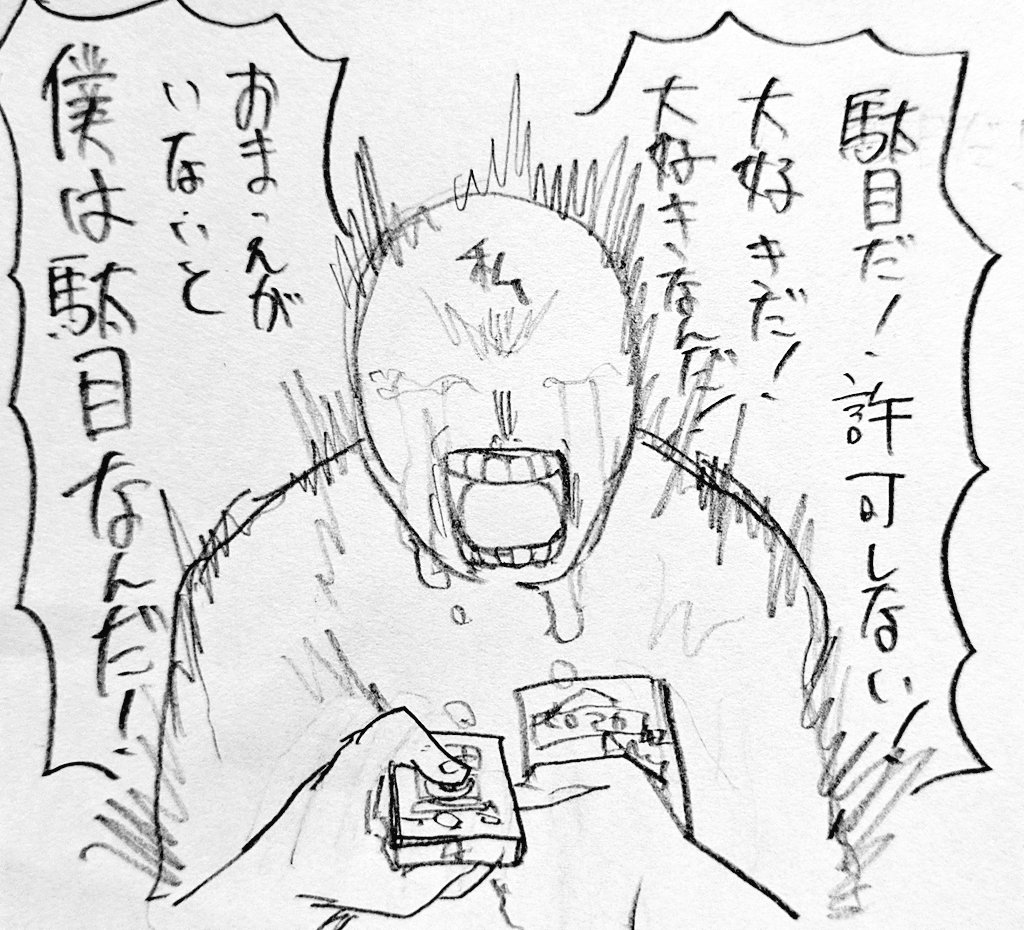 駄目だ!許可しない!
大好きだ!
大好きなんだ!
私
おまえが
いないと
僕は駄目なんだ!